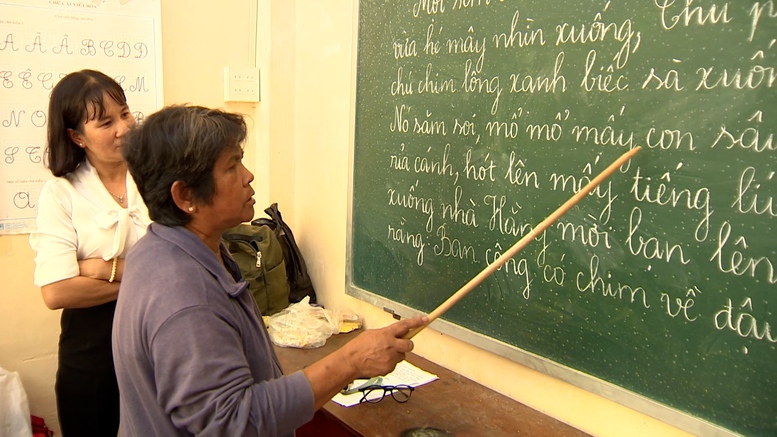 A Ă Â B C D Đ
E Ê
M
N O
Một
vừa hé mây nhìn xuống, Thu
chú chim lông xanh biếc sà xuống
Nó săm soi, mổ mổ mấy con sâu
rỉa cánh, hót lên mấy tiếng líu
xuống nhà Hằng mời bạn lên
rằng: Ban công có chim về đậu